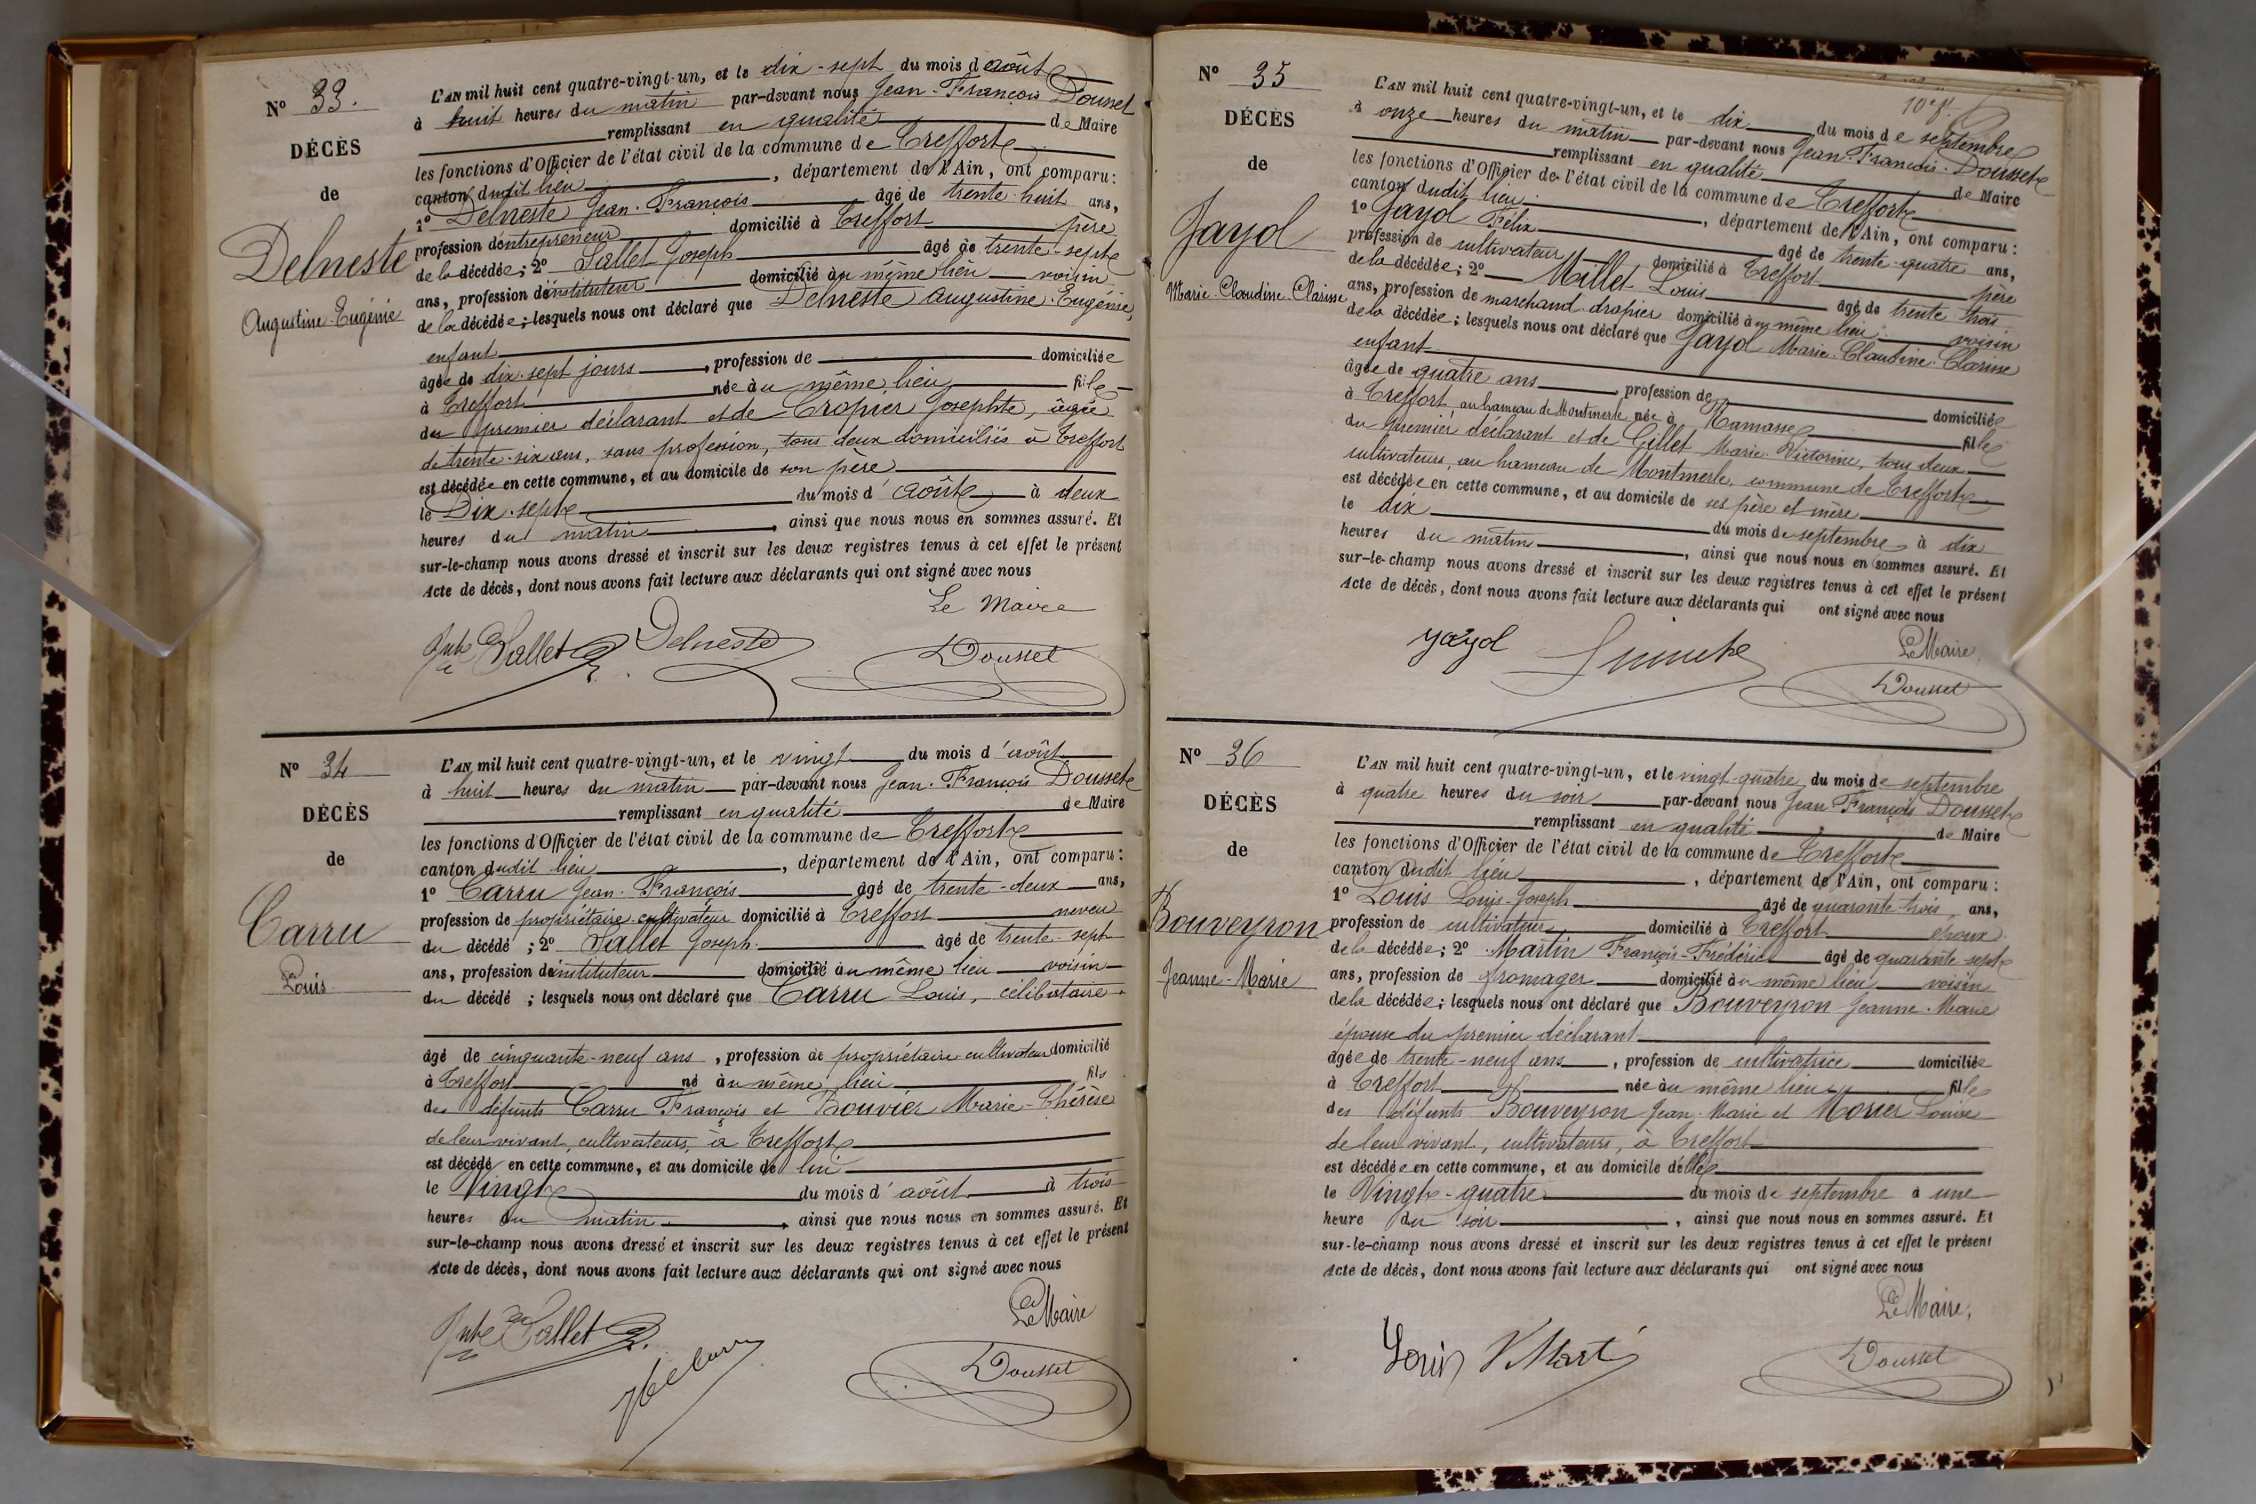 N° 33.
DÉCÈS
de
Delneste
Augustine-Eugénie
L'AN mil huit cent quatre-vingt-un, et le dix-sept du mois d'août
à huit heures du matin par-devant nous Jean-François Dousset
remplissant en qualité de Maire
les fonctions d'Officier de l'état civil de la commune de Treffort
canton dudit lieu, département de l'Ain, ont comparu:
1° Delneste Jean-François âgé de trente-huit ans,
profession d'entrepreneur domicilié à Treffort père
de la décédée; 2° Sallet Joseph âgé de trente-sept
ans, profession d'instituteur domicilié au même lieu voisin
de la décédée; lesquels nous ont déclaré que Delneste Augustine-Eugénie,
enfant
âgée de dix-sept jours, profession de domiciliée
à Treffort née au même lieu fille
du premier déclarant et de Cropier Josephte, âgée
de trente-six ans, sans profession, tous deux domiciliés à Treffort
est décédée en cette commune, et au domicile de son père
le Dix-sept du mois d'août à deux
heures du matin, ainsi que nous nous en sommes assuré. Et
sur-le-champ nous avons dressé et inscrit sur les deux registres tenus à cet effet le présent
Acte de décès, dont nous avons fait lecture aux déclarants qui ont signé avec nous
Le Maire
Sallet Delneste Dousset
N° 34
DÉCÈS
de
Carru
Louis
L'AN mil huit cent quatre-vingt-un, et le vingt du mois d'août
à huit heures du matin par-devant nous Jean-François Dousset
remplissant en qualité de Maire
les fonctions d'Officier de l'état civil de la commune de Treffort
canton dudit lieu, département de l'Ain, ont comparu:
1° Carru Jean-François âgé de trente-deux ans,
profession de propriétaire-cultivateur domicilié à Treffort neveu
du décédé; 2° Sallet Joseph âgé de trente-sept
ans, profession d'instituteur domicilié au même lieu voisin
du décédé; lesquels nous ont déclaré que Carru Louis, célibataire
âgé de cinquante-neuf ans, profession de propriétaire-cultivateur domicilié
à Treffort né au même lieu fils
des défunts Carru François et Bouvier Marie-Thérèse
de leur vivant, cultivateurs, à Treffort
est décédé en cette commune, et au domicile de lui
le Vingt du mois d'août à trois
heures du matin, ainsi que nous nous en sommes assuré. Et
sur-le-champ nous avons dressé et inscrit sur les deux registres tenus à cet effet le présent
Acte de décès, dont nous avons fait lecture aux déclarants qui ont signé avec nous
Le Maire
Sallet Dousset
N° 35
DÉCÈS
de
Jayol
Marie-Claudine-Clarisse
L'AN mil huit cent quatre-vingt-un, et le dix du mois de septembre
à onze heures du matin par-devant nous Jean-François Dousset
remplissant en qualité de Maire
les fonctions d'Officier de l'état civil de la commune de Treffort
canton dudit lieu, département de l'Ain, ont comparu:
1° Jayol Félix âgé de trente-quatre ans,
profession de cultivateur domicilié à Treffort père
de la décédée; 2° Millet Louis âgé de trente-trois
ans, profession de marchand-drapier domicilié au même lieu voisin
de la décédée; lesquels nous ont déclaré que Jayol Marie-Claudine-Clarisse
enfant
âgée de quatre ans, profession de domiciliée
à Treffort au hameau de Montmerle née à Ramasse fille
du premier déclarant et de Gillet Marie-Victorine, tous deux
cultivateurs, au hameau de Montmerle, commune de Treffort
est décédée en cette commune, et au domicile de ses père et mère
le dix du mois de septembre à dix
heures du matin, ainsi que nous nous en sommes assuré. Et
sur-le-champ nous avons dressé et inscrit sur les deux registres tenus à cet effet le présent
Acte de décès, dont nous avons fait lecture aux déclarants qui ont signé avec nous
Le Maire,
Jayol Dousset
N° 36
DÉCÈS
de
Bouveyron
Jeanne-Marie
L'AN mil huit cent quatre-vingt-un, et le vingt-quatre du mois de septembre
à quatre heures du soir par-devant nous Jean-François Dousset
remplissant en qualité de Maire
les fonctions d'Officier de l'état civil de la commune de Treffort
canton dudit lieu, département de l'Ain, ont comparu:
1° Louis Louis-Joseph âgé de quarante-trois ans,
profession de cultivateur domicilié à Treffort époux
de la décédée; 2° Martin François-Frédéric âgé de quarante-sept
ans, profession de fromager domicilié au même lieu voisin
de la décédée; lesquels nous ont déclaré que Bouveyron Jeanne-Marie
épouse du premier déclarant
âgée de trente-neuf ans, profession de cultivatrice domiciliée
à Treffort née au même lieu fille
des défunts Bouveyron Jean-Marie et Morier Louise
de leur vivant, cultivateurs, à Treffort
est décédée en cette commune, et au domicile d'elle
le Vingt-quatre du mois de septembre à une
heure du soir, ainsi que nous nous en sommes assuré. Et
sur-le-champ nous avons dressé et inscrit sur les deux registres tenus à cet effet le présent
Acte de décès, dont nous avons fait lecture aux déclarants qui ont signé avec nous
Le Maire,
Louis Dousset